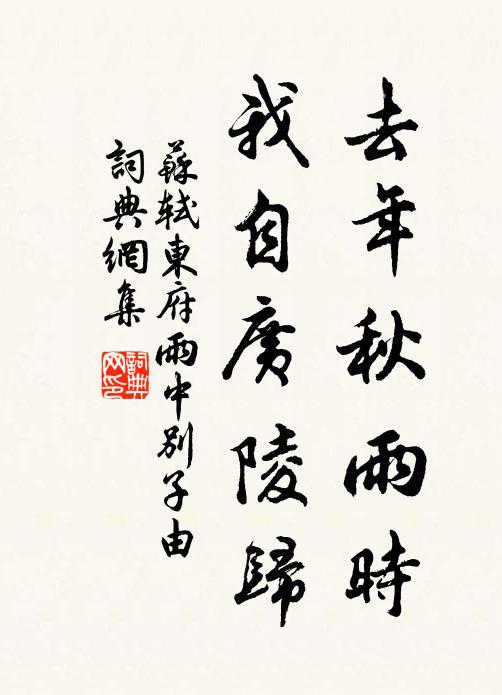 去年秋雨時
我自廣陵歸
蘇軾東府雨中別子由
詞典網集
詞典
网印